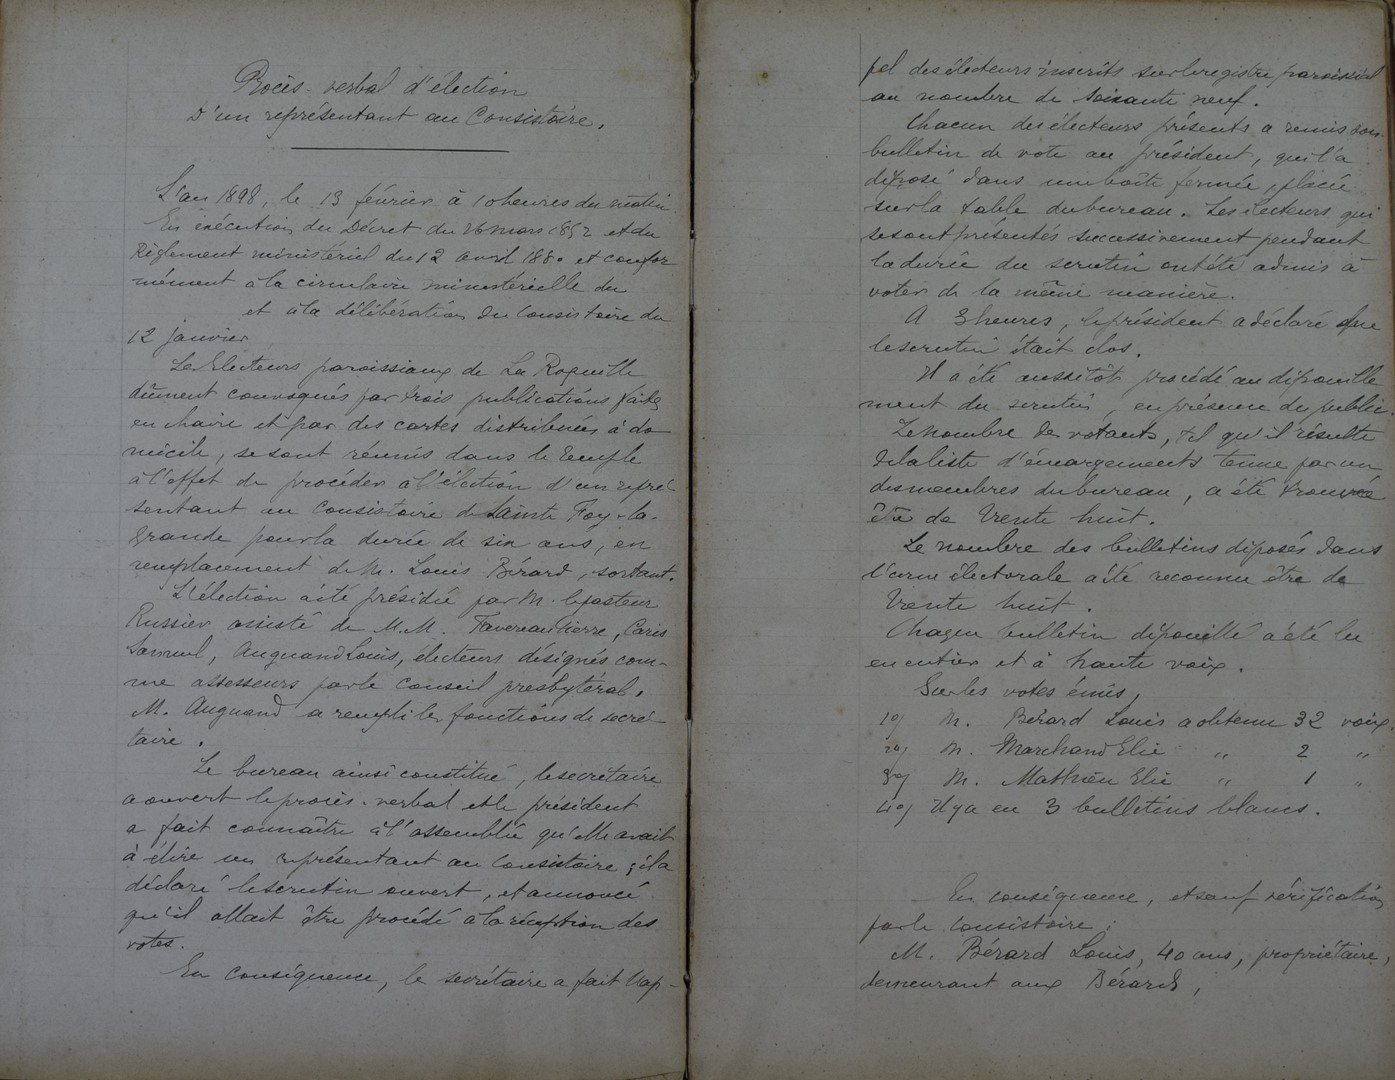 Procès-verbal d'élection
D'un représentant au Consistoire.
L'an 1898, le 13 février à 10 heures du matin
En exécution du Décret du 26 mars 1852 et du
Règlement ministériel du 12 avril 1880 et confor
mément à la circulaire ministérielle du
et à la délibération du Consistoire du
12 janvier
Les Electeurs paroissiaux de La Roquille
dûment convoqués par trois publications faites
en chaire et par des cartes distribuées à do
micile, se sont réunis dans le Temple
à l'effet de procéder à l'élection d'un repré-
sentant au Consistoire de Sainte Foy-la-
Grande pour la durée de six ans, en
remplacement de M. Louis Bérard, sortant.
L'élection a été présidée par M. le pasteur
Russier assisté de M.M. Favereau Pierre, Caris
Samuel, Auguand Louis, électeurs désignés com-
me assesseurs par le Conseil presbytéral.
M. Auguand a rempli les fonctions de secré-
taire.
Le bureau ainsi constitué, le secrétaire
a ouvert le procès-verbal et le président
a fait connaître à l'assemblée qu'elle avait
à élire un représentant au Consistoire ; il a
déclaré le scrutin ouvert, et annoncé
qu'il allait être procédé à la réception des
votes.
En conséquence, le secrétaire a fait l'ap-
pel des électeurs inscrits sur le registre paroissial
au nombre de soixante neuf.
Chacun des électeurs présents a remis son
bulletin de vote au président, qui l'a
déposé dans une boîte fermée, placée
sur la table du bureau. Les électeurs qui
se sont présentés successivement pendant
la durée du scrutin ont été admis à
voter de la même manière.
A 3 heures, le président a déclaré que
le scrutin était clos.
Il a été aussitôt procédé au dépouille
ment du scrutin, en présence du public.
Le nombre des votants, tel qu'il résulte
de la liste d'émargements tenue par un
des membres du bureau, a été trouvé
être de trente huit.
Le nombre des bulletins déposés dans
l'urne électorale a été reconnu être de
trente huit.
Chaque bulletin dépouillé a été lu
en entier et à haute voix.
Sur les votes émis,
1º/ M. Bérard Louis a obtenu 32 voix.
2º/ M. Marchand Elie " 2 "
3º/ M. Mathieu Elie " 1 "
4º/ Il y a eu 3 bulletins blancs.
En conséquence, et sauf vérification
par le Consistoire ;
M. Bérard Louis, 40 ans, propriétaire,
demeurant aux Bérards,